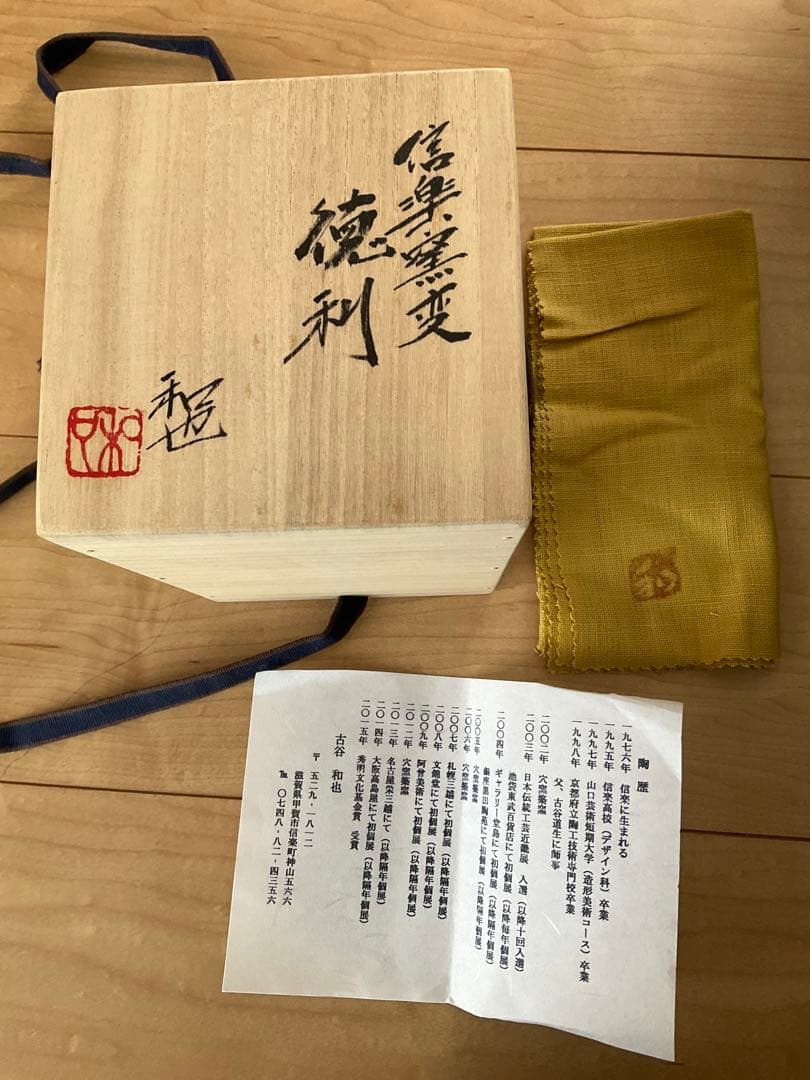 信楽窯変
徳利
和也
陶歴
一九七六年 信楽に生まれる
一九九五年 信楽高校(デザイン科)卒業
一九九七年 山口芸術短期大学(造形美術コース)卒業
一九九八年 京都府立陶工技術専門校卒業
父、古谷道生に師事
二〇〇二年 穴窯築窯
二〇〇三年 日本伝統工芸近畿展 入選(以降十回入選)
池袋東武百貨店にて初個展(以降毎年個展)
二〇〇四年 ギャラリー堂島にて初個展(以降隔年個展)
銀座黒田陶苑にて初個展(以降隔年個展)
二〇〇五年 穴窯築窯
二〇〇六年 穴窯築窯
二〇〇七年 札幌三越にて初個展(以降隔年個展)
二〇〇八年 文錦堂にて初個展(以降隔年個展)
二〇〇九年 阿曾美術にて初個展(以降隔年個展)
二〇一二年 穴窯築窯
二〇一三年 名古屋栄三越にて(以降隔年個展)
二〇一四年 大阪高島屋にて初個展(以降隔年個展)
二〇一五年 秀明文化基金賞 受賞
古谷 和也
〒 五二九‐一八一二
滋賀県甲賀市信楽町神山五六六
℡ 〇七四八‐八二‐四三五六